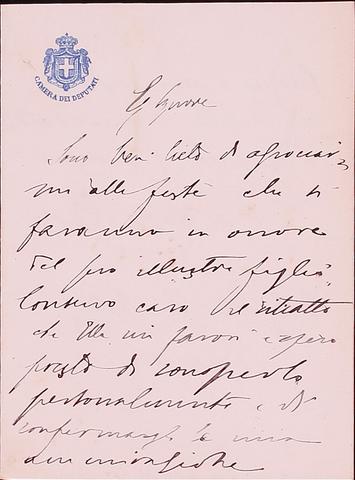 CAMERA DEI DEPUTATI
Eg Signore
Sono ben lieto di associar
mi alle feste che si
faranno in onore
del suo illustre figlio
Conservo caro il ritratto
che Ella mi favorì e spero
presto di conoscerla
personalmente e di
confermarle la mia
ammirazione